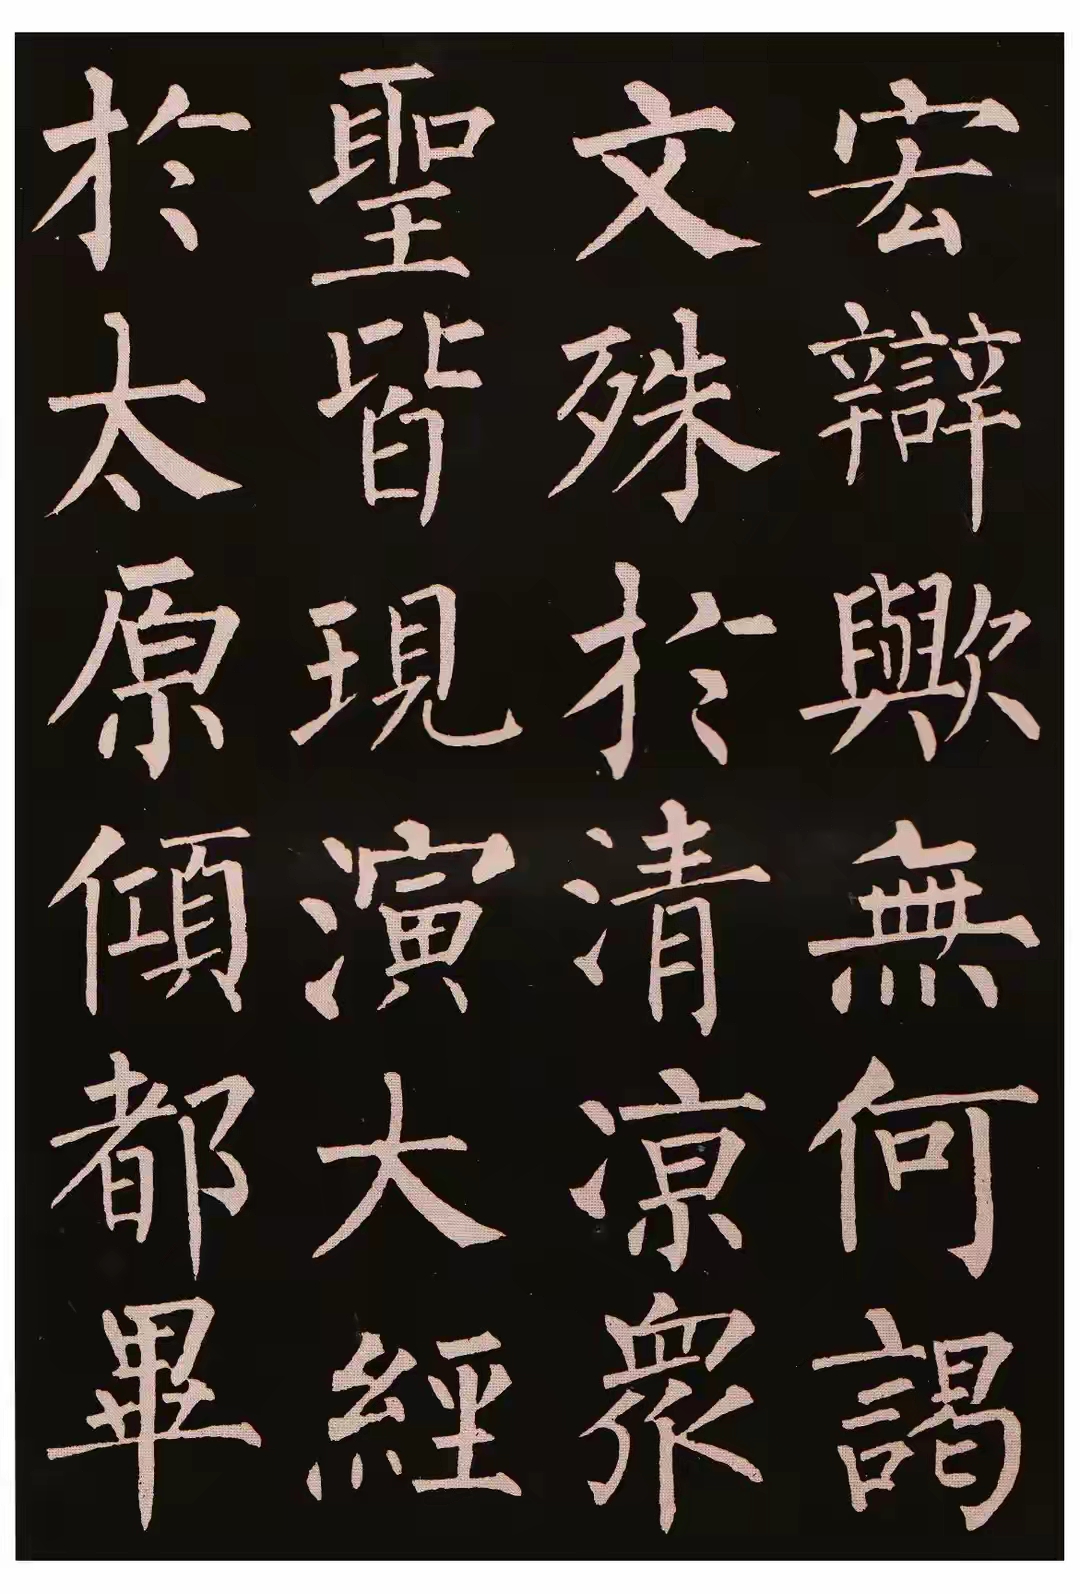 宏辯歟無何謁
文殊於清涼衆
聖皆現演大經
於太原傾都畢